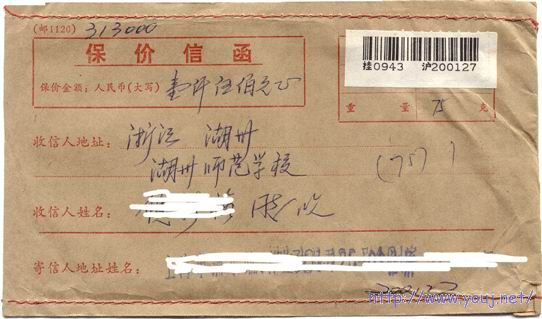 (邮1120) 313000
保价信函
保价金额：人民币(大写) 壹仟伍佰元正
挂0943 沪200127
重 量 75 克
收信人地址： 浙江 湖州
湖州师范学校
(75)
收信人姓名：
寄信人地址姓名：
http://www.youj.net/